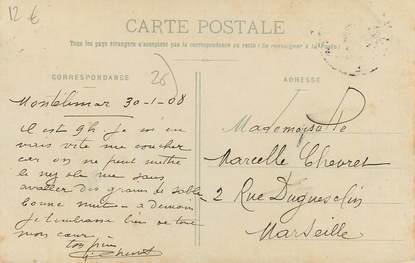 12 €
CARTE POSTALE
Tous les pays étrangers n'acceptent pas la correspondance au recto (Se renseigner à la Poste).
CORRESPONDANCE
26
ADRESSE
Montélimar 30-1-08
Il est 9h je m'en
vais vite me coucher
car on ne peut mettre
le nez sans
avaler des grains de sable
Bonne nuit - à demain
je t'embrasse bien de tout
mon cœur
ton père
Chevret
Mademoiselle
Marcelle Chevret
2 Rue Duguesclin
Marseille